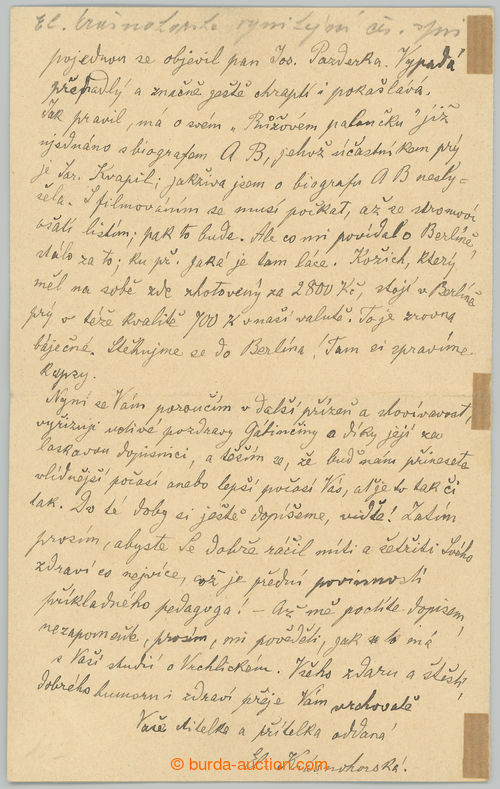 El. Krásnohorská
pojednou se objevil pan Jos. Pazderka. Vypadá
přepadlý a značně ještě chraptí i pokašlává.
Jak pravil, má o svém „Růžovém paloučku" již
ujednáno s biografem A B, jehož účastníkem prý
je Jar. Kvapil; jakživa jsem o biografu A B nesly-
šela. S filmováním se musí počkat, až se stromoví
ošatí listím; pak to bude. Ale co mi povídal o Berlíně,
stálo za to; ku př. jaká je tam láce. Kožich, který
měl na sobě zde zhotovený za 2800 Kč, stojí v Berlíně
prý v téže kvalitě 700 K v naší valutě. To je zrovna
báječné. Stěhujme se do Berlína! Tam si spravíme
kapsy.
Nyní se Vám poroučím v další přízeň a shovívavost,
vyřizuji uctivé pozdravy Gabinčiny a díky její za
laskavou dopisnici, a těším se, že buď nám přinesete
vlídnější počasí anebo lepší počasí Vás, ať je to tak či
tak. Do té doby si ještě dopíšeme, viďte! Zatím
prosím, abyste se dobře ráčil míti a šetřiti Svého
zdraví co nejvíce, což je přední povinností
příkladného pedagoga! – Až mě poctíte dopisem,
nezapomeňte, prosím, mi pověděti, jak se to má
s Vaší studií o Vrchlickém. Všeho zdaru a štěstí,
dobrého humoru i zdraví přeje Vám vrchovatě
Vaše ctitelka a přítelka oddaná
El. Krásnohorská.
© burda-auction.com